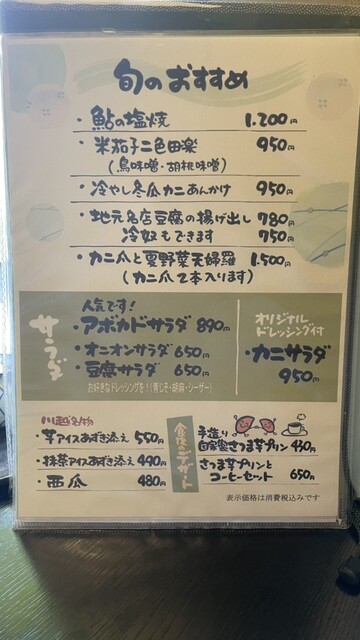 旬のおすすめ
・鮎の塩焼 1.200円
・米茄子二色田楽 950円
(鳥味噌・胡桃味噌)
・冷やし冬瓜カニあんかけ 950円
・地元名店豆腐の揚げ出し 780円
冷奴もできます 750円
・カニ爪と夏野菜天婦羅 1.500円
(カニ爪2本入ります)
サラダ
人気です!
・アボカドサラダ 890円
・オニオンサラダ 650円
・豆腐サラダ 650円
お好きなドレッシングを!(青じそ・胡麻・シーザー)
オリジナル
ドレッシング付
・カニサラダ
950円
川越名物
・芋アイスあずき添え 550円
・抹茶アイスあずき添え 490円
・西瓜 480円
食後のデザート
手造り
自家製さつま芋プリン 430円
さつま芋プリンと
コーヒーセット 650円
表示価格は消費税込みです